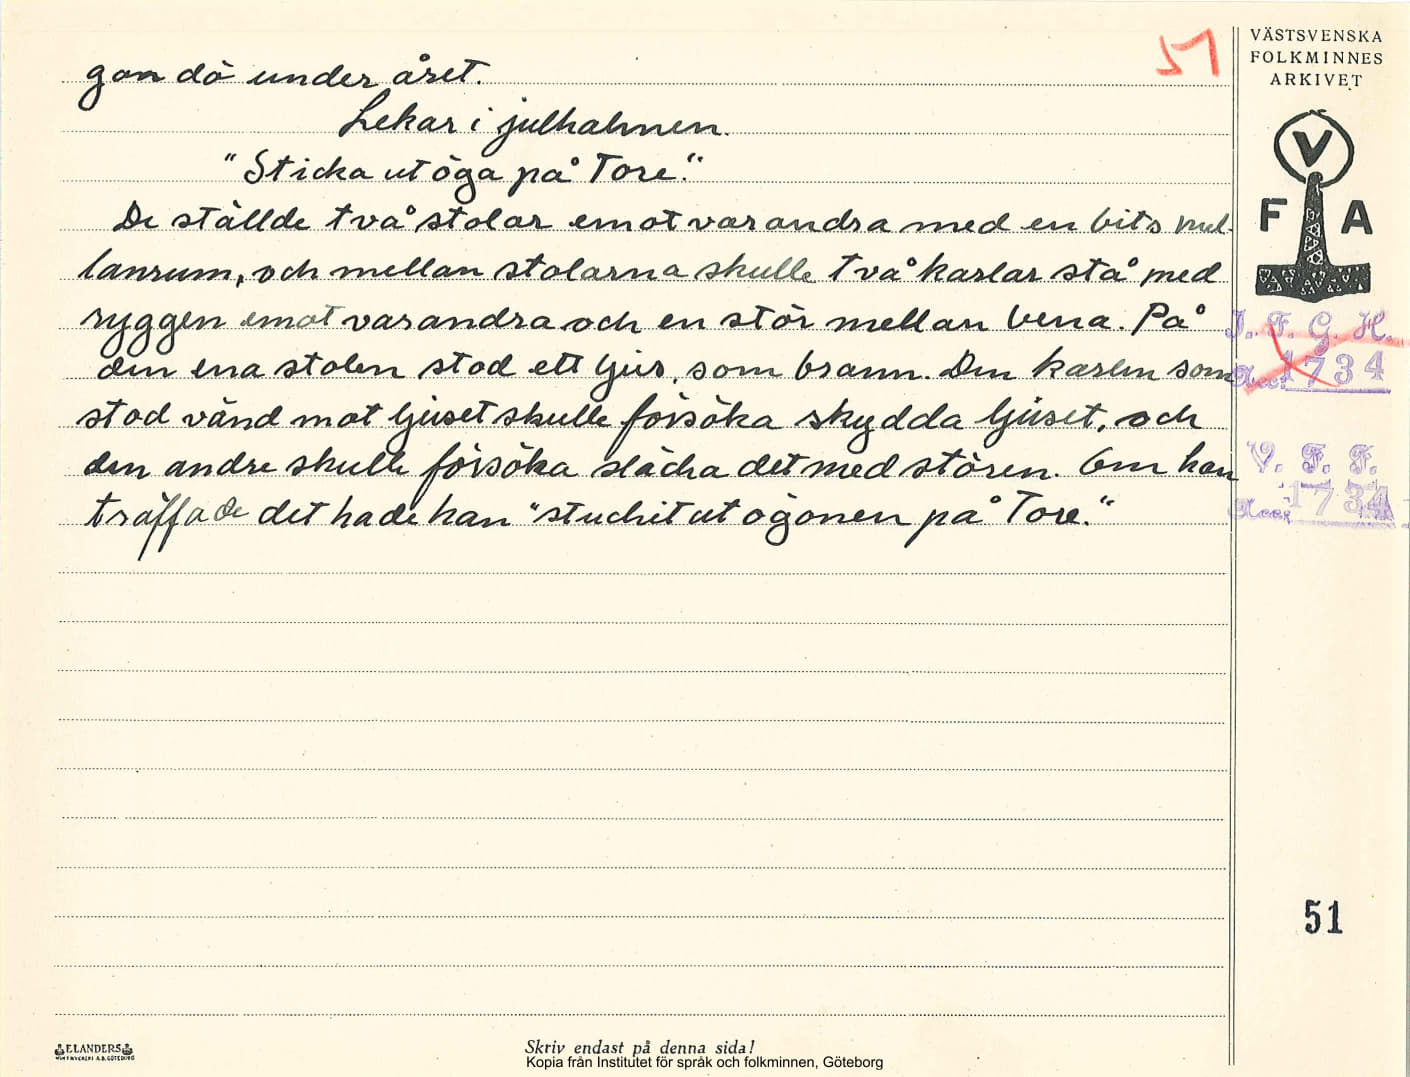 51
gon dö under året.
Lekar i julhalmen.
"Sticka ut öga på Tore."
De ställde två stolar emot varandra med en bits mel-
lanrum, och mellan stolarna skulle två karlar stå med
ryggen emot varandra och en stör mellan bena. På
den ena stolen stod ett ljus, som brann. Den karlen som
stod vänd mot ljuset skulle försöka skydda ljuset, och
den andre skulle försöka släcka det med stören. Om han
träffade det hade han "stuckit ut ögonen på Tore."
VÄSTSVENSKA
FOLKMINNES
ARKIVET
V
F A
I. F. G. H.
Acc. 1734
V. F. F.
Acc. 1734
51
ELANDERS
Skriv endast på denna sida!
Kopia från Institutet för språk och folkminnen, Göteborg